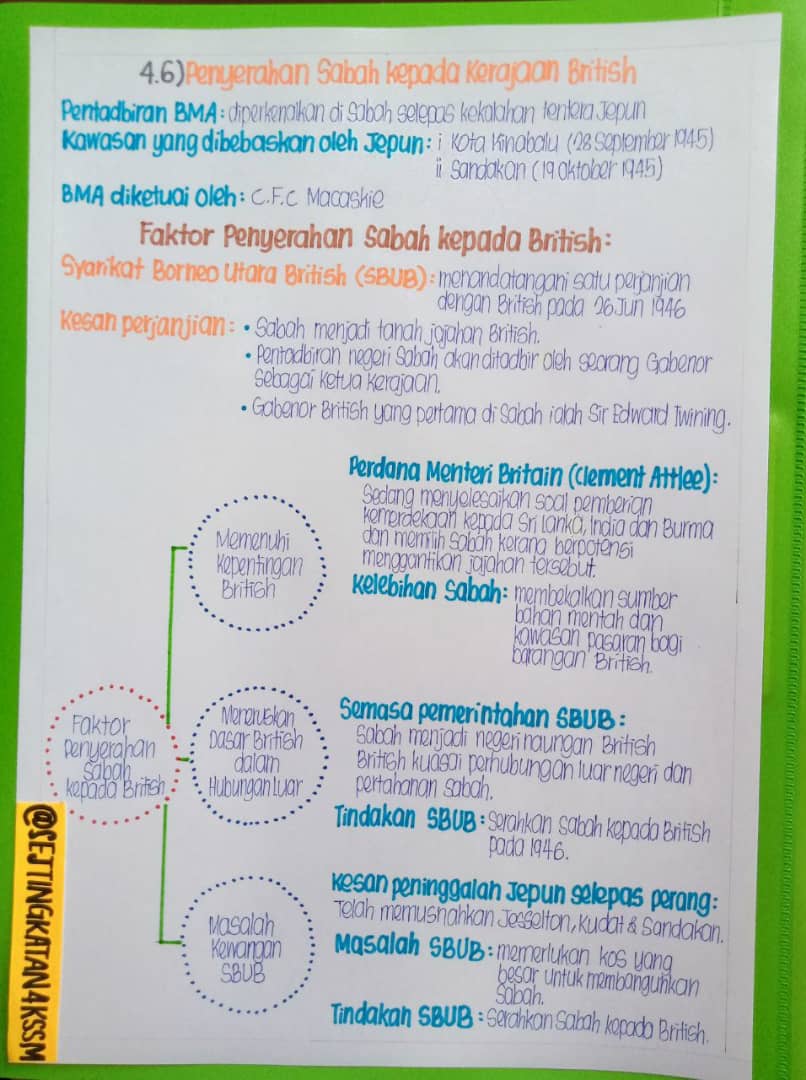 4.6) Penyerahan Sabah kepada Kerajaan British
Pentadbiran BMA : diperkenalkan di Sabah selepas kekalahan tentera Jepun
Kawasan yang dibebaskan oleh Jepun : i Kota Kinabalu (28 September 1945)
ii Sandakan (19 Oktober 1945)
BMA diketuai oleh : C.F.C Macaskie
Faktor Penyerahan Sabah kepada British :
Syarikat Borneo Utara British (SBUB) : menandatangani satu perjanjian
dengan British pada 26 Jun 1946
Kesan perjanjian : • Sabah menjadi tanah jajahan British.
• Pentadbiran negeri Sabah akan ditadbir oleh seorang Gabenor
sebagai ketua kerajaan.
• Gabenor British yang pertama di Sabah ialah Sir Edward Twining.
Perdana Menteri Britain (Clement Attlee) :
Sedang menyelesaikan soal pemberian
kemerdekaan kepada Sri Lanka, India dan Burma
dan memilih Sabah kerana berpotensi
menggantikan jajahan tersebut.
Kelebihan Sabah : membekalkan sumber
bahan mentah dan
kawasan pasaran bagi
barangan British.
Memenuhi
Kepentingan
British
Faktor
penyerahan
Sabah
kepada British
Meneruskan
Dasar British
dalam
Hubungan luar
Semasa pemerintahan SBUB :
Sabah menjadi negeri naungan British
British kuasai perhubungan luar negeri dan
pertahanan Sabah.
Tindakan SBUB : Serahkan Sabah kepada British
pada 1946.
Masalah
Kewangan
SBUB
Kesan peninggalan Jepun selepas perang :
Telah memusnahkan Jesselton, Kudat & Sandakan.
Masalah SBUB : memerlukan kos yang
besar untuk membangunkan
Sabah.
Tindakan SBUB : Serahkan Sabah kepada British.
@SEJTINGKATAN4KSSM